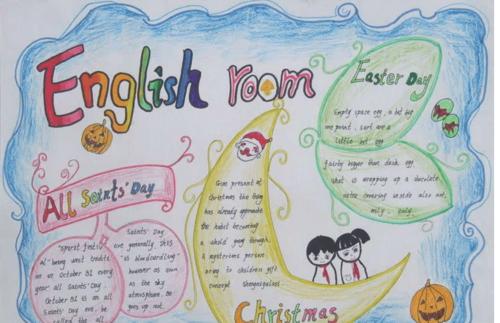 English room
Easter Day
Empty space egg, a bit big
one point, sort are a
little bit egg
fairly bigger than duck egg
what is wrapping up a chocolate
outer covering inside also not,
only
All Saints' Day
"sparst
Al" being west tradits
on us October 31 every
year all Saints' Day.
October 31 is an all
Saints' Day eve, be
called the all
Saints' Day
are generally, this
is
however as soon
as the sky
atmosphere. Be
goes up not.
Give present at
Christmas the thing
has already approache
the habit becoming
a whold gang through.
A mysterious person
bring to children gift
concept
Christmas